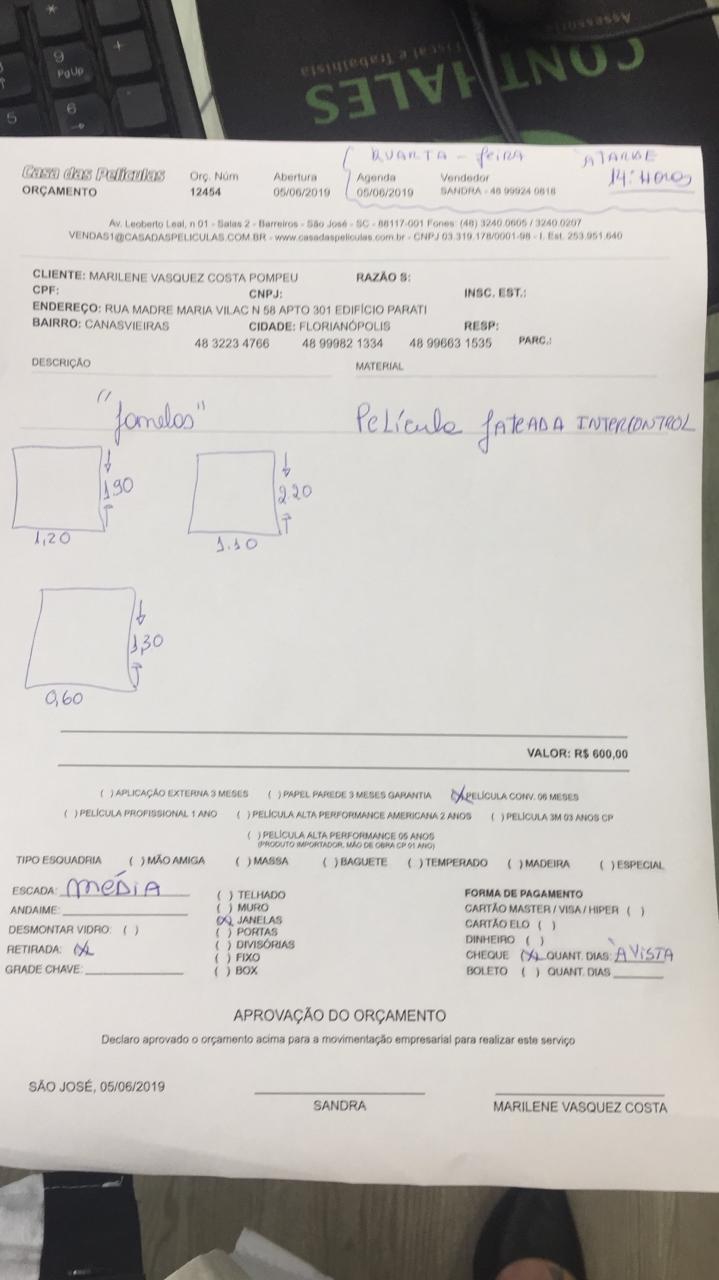 *
9
PgUp
+
5
6
Assessoria
Fiscal e Trabalhista
CONTHALES
QUARTA - feira ATARDE
14: HORAS
Casa das Películas Orç. Núm Abertura Agenda Vendedor
ORÇAMENTO 12454 05/06/2019 05/06/2019 SANDRA - 48 99924 0818
Av. Leoberto Leal, n 01 - Salas 2 - Barreiros - São José - SC - 88117-001 Fones: (48) 3240.0605 / 3240.0207
VENDAS1@CASADASPELICULAS.COM.BR - www.casadaspeliculas.com.br - CNPJ 03.319.178/0001-98 - I. Est. 253.951.640
CLIENTE: MARILENE VASQUEZ COSTA POMPEU RAZÃO S:
CPF: CNPJ: INSC. EST.:
ENDEREÇO: RUA MADRE MARIA VILAC N 58 APTO 301 EDIFÍCIO PARATI
BAIRRO: CANASVIEIRAS CIDADE: FLORIANÓPOLIS RESP:
48 3223 4766 48 99982 1334 48 99663 1535 PARC.:
DESCRIÇÃO MATERIAL
"Janelas" Película JATEADA INTERCONTROL
1,90 2.20
1,20 1.10
1,30
0,60
VALOR: R$ 600,00
( ) APLICAÇÃO EXTERNA 3 MESES ( ) PAPEL PAREDE 3 MESES GARANTIA (X) PELÍCULA CONV. 06 MESES
( ) PELÍCULA PROFISSIONAL 1 ANO ( ) PELÍCULA ALTA PERFORMANCE AMERICANA 2 ANOS ( ) PELÍCULA 3M 03 ANOS CP
( ) PELÍCULA ALTA PERFORMANCE 05 ANOS
(PRODUTO IMPORTADOR, MÃO DE OBRA CP 01 ANO)
TIPO ESQUADRIA ( ) MÃO AMIGA ( ) MASSA ( ) BAGUETE ( ) TEMPERADO ( ) MADEIRA ( ) ESPECIAL
ESCADA: MÉDIA ( ) TELHADO FORMA DE PAGAMENTO
ANDAIME: ( ) MURO CARTÃO MASTER / VISA / HIPER ( )
(X) JANELAS CARTÃO ELO ( )
DESMONTAR VIDRO: ( ) ( ) PORTAS DINHEIRO ( )
RETIRADA: (X) ( ) DIVISÓRIAS CHEQUE (X) QUANT. DIAS: À VISTA
( ) FIXO BOLETO ( ) QUANT. DIAS
GRADE CHAVE: ( ) BOX
APROVAÇÃO DO ORÇAMENTO
Declaro aprovado o orçamento acima para a movimentação empresarial para realizar este serviço
SÃO JOSÉ, 05/06/2019
SANDRA MARILENE VASQUEZ COSTA